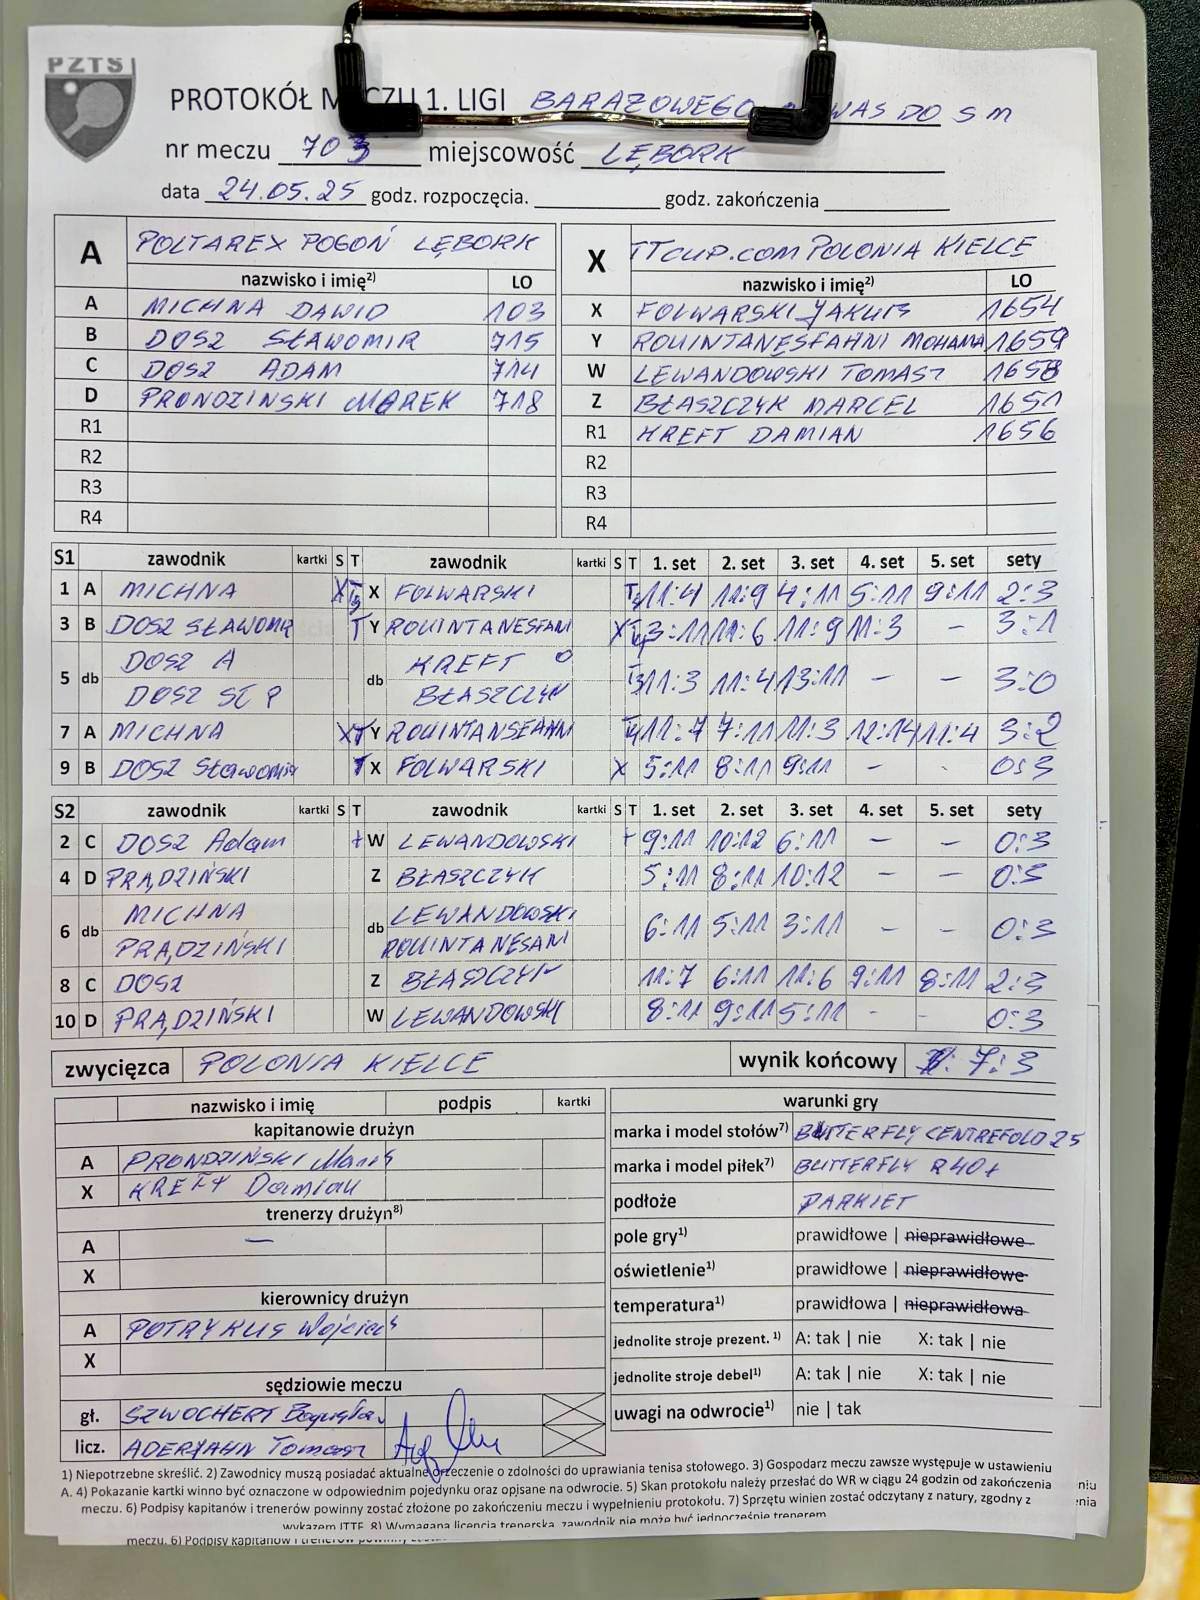 PZTS
PROTOKÓŁ MECZU 1. LIGI BARAŻOWEGO WAS DO S M
nr meczu 703 miejscowość LĘBORK
data 24.05.25 godz. rozpoczęcia. godz. zakończenia
A POLTAREX POGOŃ LĘBORK X TTCUP.COM POLONIA KIELCE
nazwisko i imię2) LO nazwisko i imię2) LO
A MICHNA DAWID 103 X FOLWARSKI JAKUB 1654
B DOSZ SŁAWOMIR 715 Y ROUINTANESFAHNI MOHAMA 1659
C DOSZ ADAM 714 W LEWANDOWSKI TOMASZ 1658
D PRONDZINSKI MAREK 718 Z BŁASZCZYK MARCEL 1651
R1 R1 KREFT DAMIAN 1656
R2 R2
R3 R3
R4 R4
S1 zawodnik kartki S T zawodnik kartki S T 1. set 2. set 3. set 4. set 5. set sety
1 A MICHNA X T5 X FOLWARSKI T5 11:4 11:9 4:11 5:11 9:11 2:3
3 B DOSZ SŁAWOMIR T Y ROUINTANESFANI X T4 3:11 11:6 11:9 11:3 – 3:1
5 db DOSZ A db KREFT D T3 11:3 11:4 13:11 – – 3:0
DOSZ SŁ P BŁASZCZYK
7 A MICHNA X T Y ROUINTANSFAHNI T4 11:7 7:11 11:3 12:14 11:4 3:2
9 B DOSZ Sławomir T X FOLWARSKI X 5:11 8:11 9:11 – – 0:3
S2 zawodnik kartki S T zawodnik kartki S T 1. set 2. set 3. set 4. set 5. set sety
2 C DOSZ Adam + W LEWANDOWSKI + 9:11 10:12 6:11 – – 0:3
4 D PRĄDZIŃSKI Z BŁASZCZYK 5:11 8:11 10:12 – – 0:3
6 db MICHNA db LEWANDOWSKI 6:11 5:11 3:11 – – 0:3
PRĄDZIŃSKI ROUINTANESANI
8 C DOSZ Z BŁASZCZYK 11:7 6:11 11:6 9:11 8:11 2:3
10 D PRĄDZIŃSKI W LEWANDOWSKI 8:11 9:11 5:11 - - 0:3
zwycięzca POLONIA KIELCE wynik końcowy 7:3
nazwisko i imię podpis kartki warunki gry
kapitanowie drużyn marka i model stołów7) BUTTERFLY CENTREFOLD 25
A PRONDZIŃSKI Marek marka i model piłek7) BUTTERFLY R40+
X KREFT Damian podłoże PARKIET
trenerzy drużyn8)
A — pole gry1) prawidłowe | nieprawidłowe
X oświetlenie1) prawidłowe | nieprawidłowe
kierownicy drużyn temperatura1) prawidłowa | nieprawidłowa
A POTRYKUS Wojciech jednolite stroje prezent. 1) A: tak | nie X: tak | nie
X jednolite stroje debel1) A: tak | nie X: tak | nie
sędziowie meczu
gł. SZWOCHERT Bogusław uwagi na odwrocie1) nie | tak
licz. ADERJAHN Tomasz
1) Niepotrzebne skreślić. 2) Zawodnicy muszą posiadać aktualne orzeczenie o zdolności do uprawiania tenisa stołowego. 3) Gospodarz meczu zawsze występuje w ustawieniu
A. 4) Pokazanie kartki winno być oznaczone w odpowiednim pojedynku oraz opisane na odwrocie. 5) Skan protokołu należy przesłać do WR w ciągu 24 godzin od zakończenia
meczu. 6) Podpisy kapitanów i trenerów powinny zostać złożone po zakończeniu meczu i wypełnieniu protokołu. 7) Sprzętu winien zostać odczytany z natury, zgodny z
wykazem ITTF. 8) Wymagana licencja trenerska, zawodnik nie może być jednocześnie trenerem
meczu. 6) Podpisy kapitanów i trenerów powinny